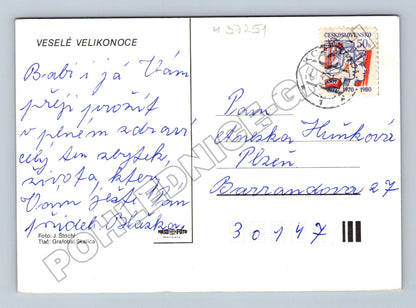 M 37251
VESELÉ VELIKONOCE
ČESKOSLOVENSKO
50h
1970 - 1980
Babi i já Vám
přeji prožít
v plném zdraví
celý ten zbytek,
života, který
Vám ještě Pán
přidělí Blažka,
Pam
Anežka Huňková
Plzeň
Barrandova 27
30147
Foto: J. Štochl
Tlač: Grafobal Skalica
POHLEDNICE.C